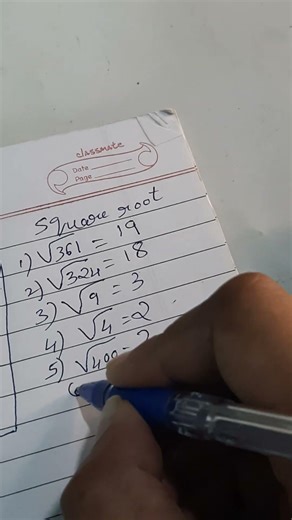 classmate
Date
Page
Square root
1) √361 = 19
2) √324 = 18
3) √9 = 3
4) √4 = 2
5) √400 =